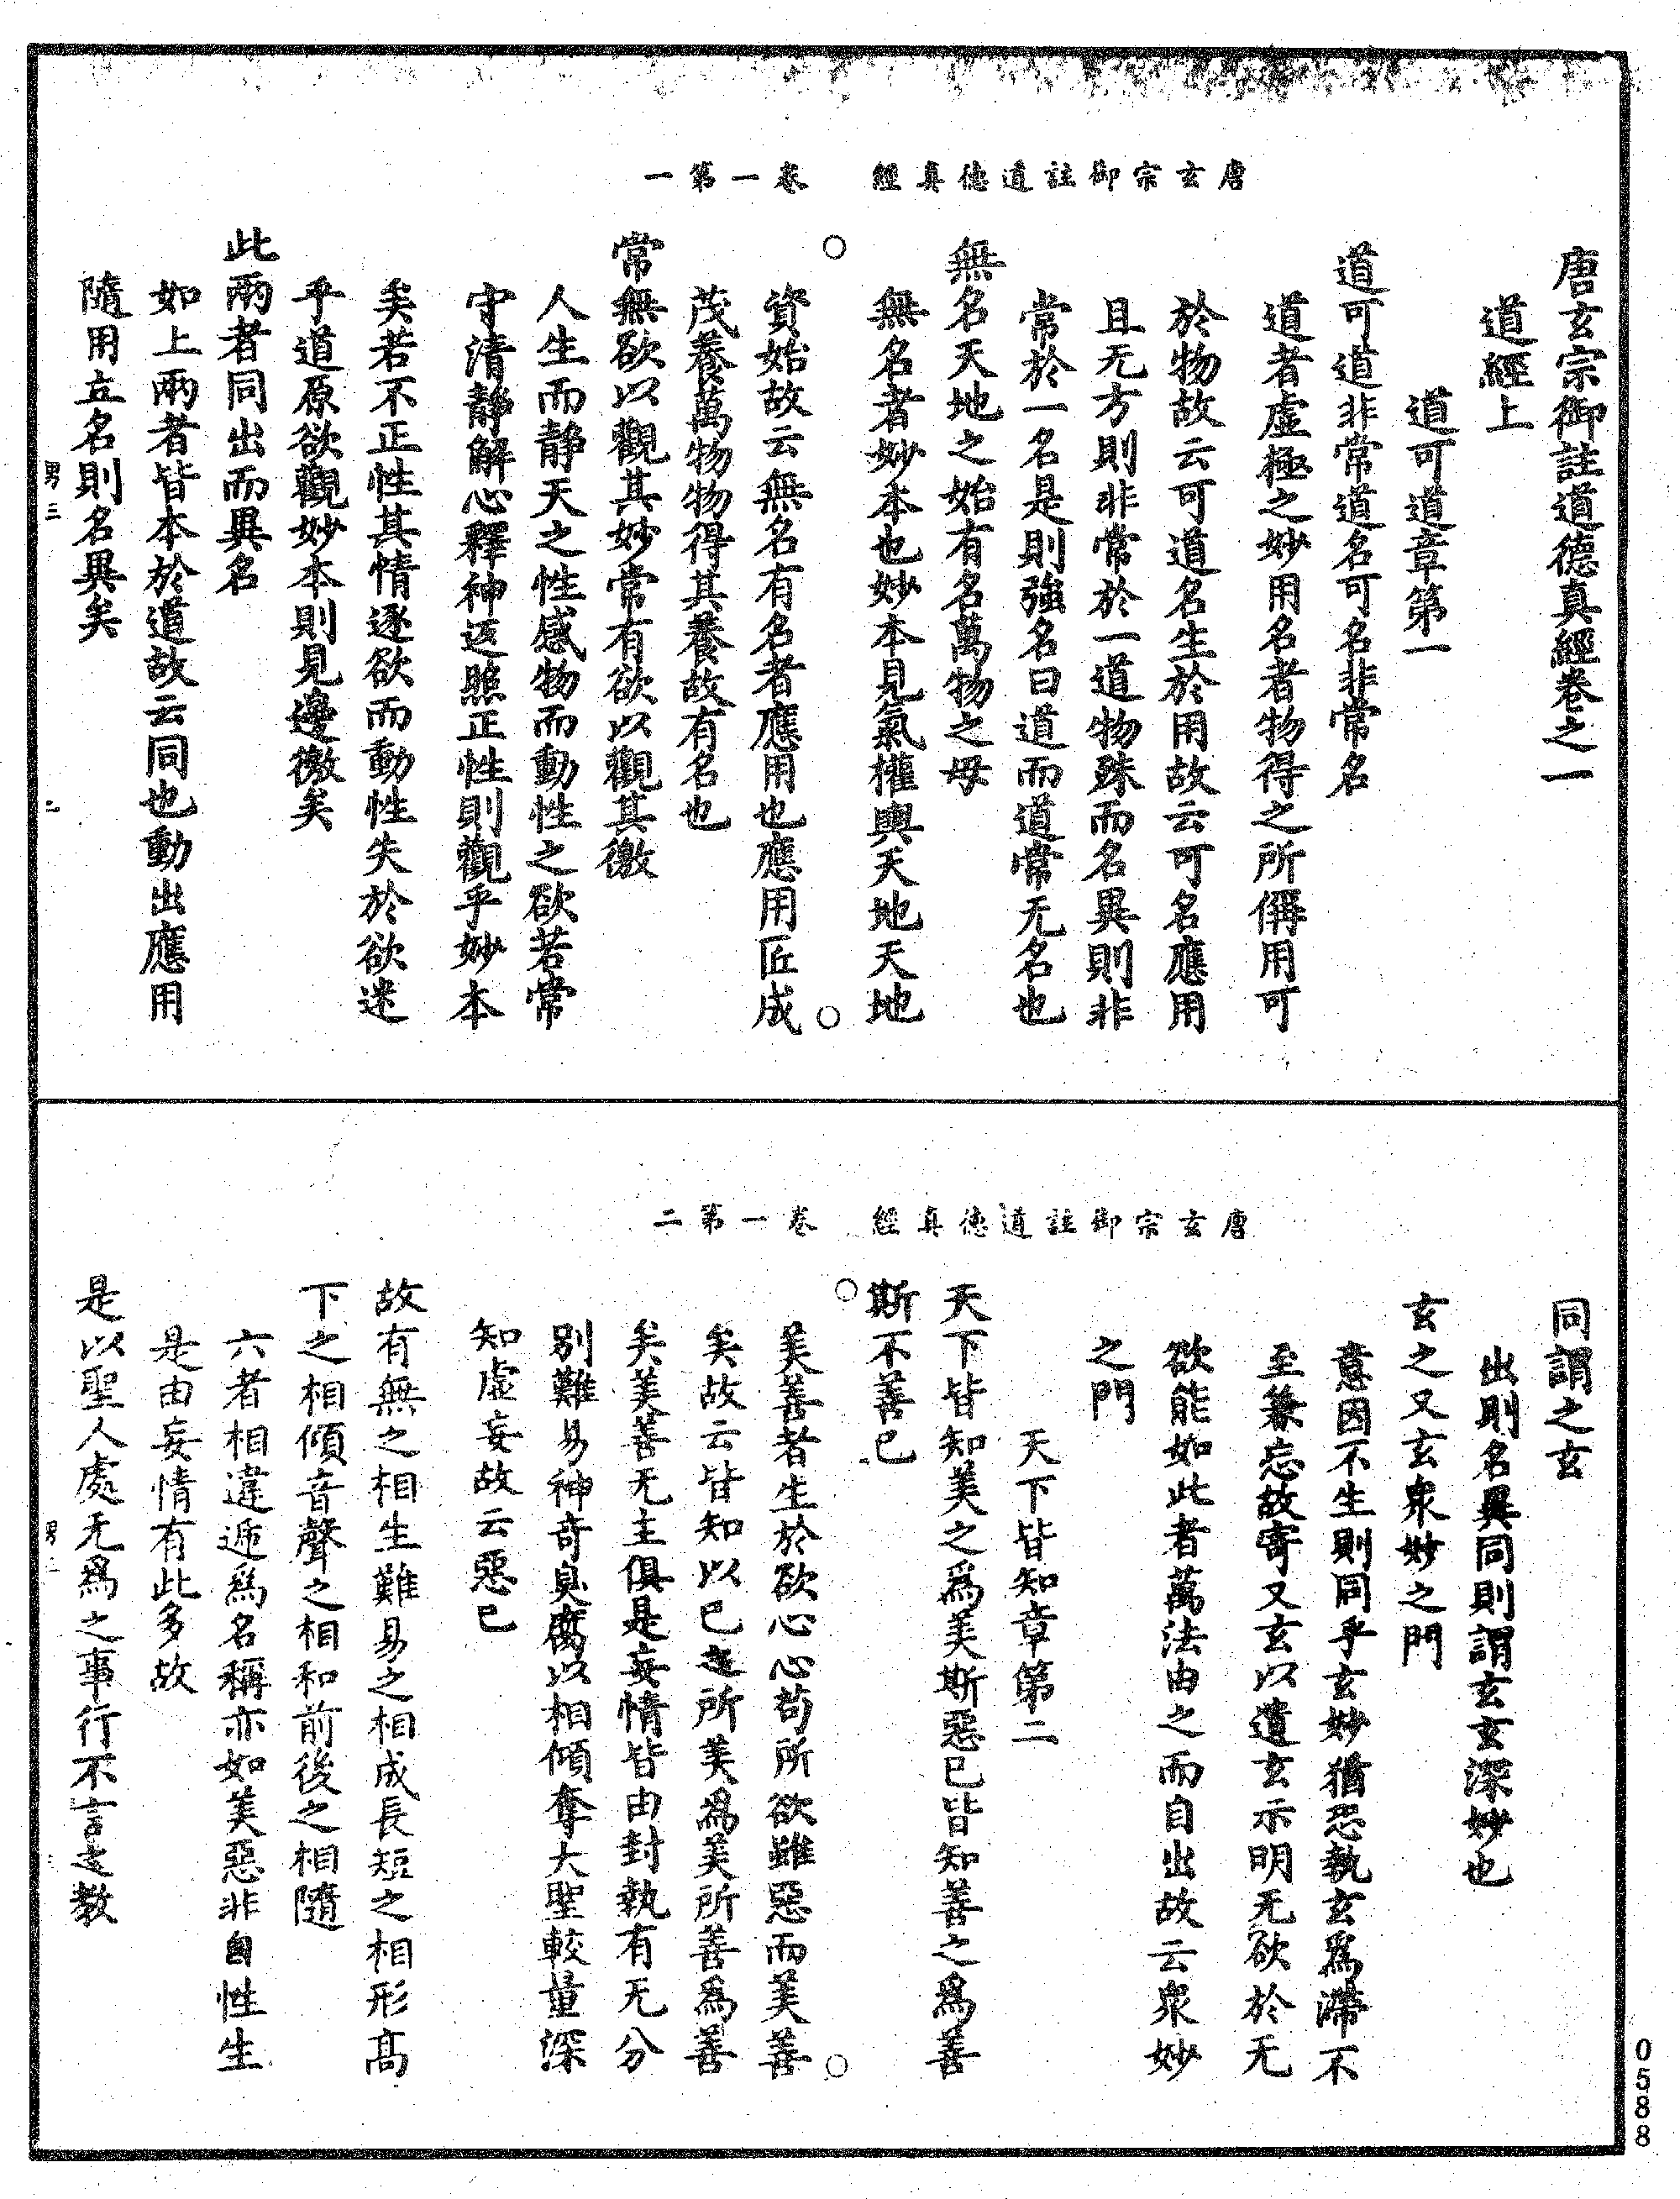 唐玄宗御註道德真經　卷一第一
唐玄宗御註道德真經卷之一
道經上
道可道章第一
道可道非常道名可名非常名
道者虛極之妙用名者物得之所偁用可
於物故云可道名生於用故云可名應用
且无方則非常於一道物殊而名異則非
常於一名是則強名曰道而道常无名也
無名天地之始有名萬物之母
無名者妙本也妙本見氣權輿天地天地
資始故云無名有名者應用也應用匠成
茂養萬物物得其養故有名也
常無欲以觀其妙常有欲以觀其徼
人生而靜天之性感物而動性之欲若常
守清靜解心釋神返照正性則觀乎妙本
矣若不正性其情逐欲而動性失於欲迷
乎道原欲觀妙本則見邊徼矣
此兩者同出而異名
如上兩者皆本於道故云同也動出應用
隨用立名則名異矣
男三
二
唐玄宗御註道德真經　卷一第二
同謂之玄
出則名異同則謂玄玄深妙也
玄之又玄衆妙之門
意因不生則同乎玄妙猶恐執玄爲滯不
至兼忘故寄又玄以遣玄示明无欲於无
欲能如此者萬法由之而自出故云衆妙
之門
天下皆知章第二
天下皆知美之爲美斯惡已皆知善之爲善
斯不善已
美善者生於欲心心苟所欲雖惡而美善
矣故云皆知以已之所美爲美所善爲善
矣美善无主俱是妄情皆由封執有无分
別難易神奇臭腐以相傾奪大聖較量深
知虛妄故云惡已
故有無之相生難易之相成長短之相形高
下之相傾音聲之相和前後之相隨
六者相違遞爲名稱亦如美惡非自性生
是由妄情有此多故
是以聖人處无爲之事行不言之教
0588